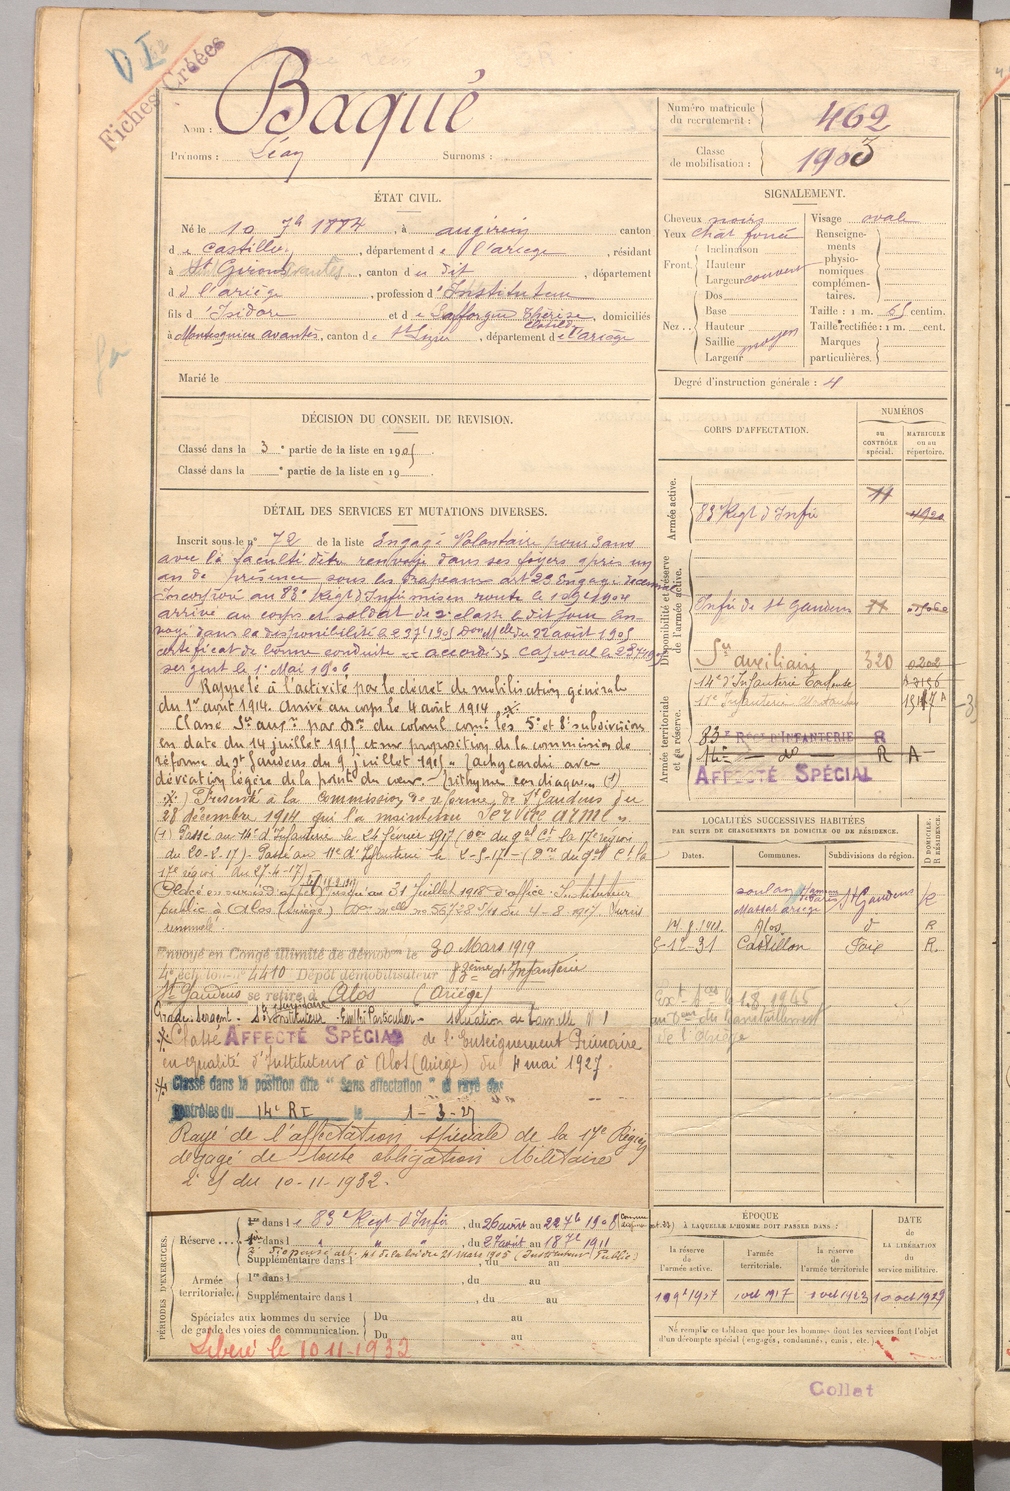 D I
Fiches Créées
Nom : Baqué
Prénoms : Léon Surnoms :
Numéro matricule du recrutement : 462
Classe de mobilisation : 1903
ÉTAT CIVIL.
Né le 10 7b 1884, à augirein canton
de Castillon, département de l'ariège, résidant
à St Girons, canton du dit, département
d de l'ariège, profession d'Instituteur
fils d'Isidore et de Lafforgue Thérèse domiciliés
à Montesquieu avantès, canton de St Lizier, département de l'ariège
Marié le
SIGNALEMENT.
Cheveux noirs
Yeux chât foncé
Front. Inclinaison
Hauteur
Largeur couvert
Nez Dos
Base
Hauteur
Saillie
Largeur moyen
Visage ovale
Renseignements physionomiques complémentaires.
Taille : 1 m. 65 centim.
Taille rectifiée : 1 m. cent.
Marques particulières.
Degré d'instruction générale : 4
DÉCISION DU CONSEIL DE REVISION.
Classé dans la 3e partie de la liste en 1905
Classé dans la e partie de la liste en 19
CORPS D'AFFECTATION.
NUMÉROS
au CONTRÔLE spécial.
MATRICULE ou au répertoire.
Armée active.
83e Regt d'Infie
Disponibilité et réserve de l'armée active.
Infie de St Gaudens
Armée territoriale et sa réserve.
Sce auxiliaire 320
14e d'Infanterie
11e Infanterie Montauban
83e REGt D'INFANTERIE R
14e — do — R A
AFFECTÉ SPÉCIAL
DÉTAIL DES SERVICES ET MUTATIONS DIVERSES.
Inscrit sous le no 72 de la liste Engagé Volontaire pour 3 ans
avec la faculté d'être renvoyé dans ses foyers après un
an de présence sous les drapeaux art 23 Engagé
Incorporé au 83e Regt d'Infie mis en route le 10 9b 1904
arrivé au corps et soldat de 2e classe le dit jour En
voyé dans la disponibilité le 23 7b 1905 Don Mlle du 22 août 1905
certificat de bonne conduite "accordé" Caporal le
sergent le 1er Mai 1906
Rappelé à l'activité par le décret de mobilisation générale
du 1er août 1914. Arrivé au corps le 4 août 1914
Classé Sce auxre par Don du colonel comt les 5e et 8e subdivision
en date du 14 juillet 1915 et sur proposition de la commission de
réforme de St Gaudens du 9 juillet 1915 « tachycardie avec
déviation légère de la pointe du cœur. — Arithymie cardiaque » (1)
) Présenté à la commission de réforme de St Gaudens du
28 décembre 1914 qui l'a maintenu service armé ».
(1) Passé au 14e d'Infanterie le 24 février 1917 (Don du gal Ct la 17e région
du 20-2-17) — Passé au 11e d'Infanterie le 2-5-17 — (Don du gal Ct la
17e région du 27-4-17)
Placé en sursis d'appel jusqu'au 31 Juillet 1918 d'office Instituteur
public à Alos (Ariège) Don Mlle no 56728 5/11 du 4-8-1917. Sursis
renouvelé.
Envoyé en Congé illimité de démobon le 30 Mars 1919
4e échelon no 4410 Dépôt démobilisateur 83ème d'Infanterie
St Gaudens se retire à Alos (Ariège)
Grade Sergent. Instituteur. Situation de famille N 1
Classé AFFECTÉ SPÉCIAL de l'Enseignement Primaire
en qualité d'Instituteur à Alos (Ariège) du 4 mai 1927.
Classé dans la position dite "Sans affectation" et rayé des
contrôles du 14e RI le 1-3-27
Rayé de l'affectation spéciale de la 17e Région
dégagé de toute obligation Militaire
du 10-11-1932.
LOCALITÉS SUCCESSIVES HABITÉES
PAR SUITE DE CHANGEMENTS DE DOMICILE OU DE RÉSIDENCE.
D DOMICILE. R RÉSIDENCE.
Dates. Communes. Subdivisions du région.
Soulan
Massat ariège St Gaudens R
Alos d R
5-12-31 Castillon Foix R.
PÉRIODES D'EXERCICES.
Réserve
1re dans le 83e Regt d'Infie, du 26 août au 22 7b 1908
dans l " " ", du 27 août au 18 7b 1911
Supplémentaire dans l, du au
Armée territoriale.
1re dans l, du au
Supplémentaire dans l, du au
Spéciales aux hommes du service de garde des voies de communication.
Du au
Du au
Libéré le 10 11-1932
ÉPOQUE
À LAQUELLE L'HOMME DOIT PASSER DANS :
la réserve de l'armée active.
l'armée territoriale.
la réserve de l'armée territoriale
DATE DE LA LIBÉRATION du service militaire.
1 oct 1917 1 oct 1923 10 oct 1929
Ne remplir ce tableau que pour les hommes dont les services font l'objet
d'un décompte spécial (engagés, condamnés, omis, etc.)
Collat